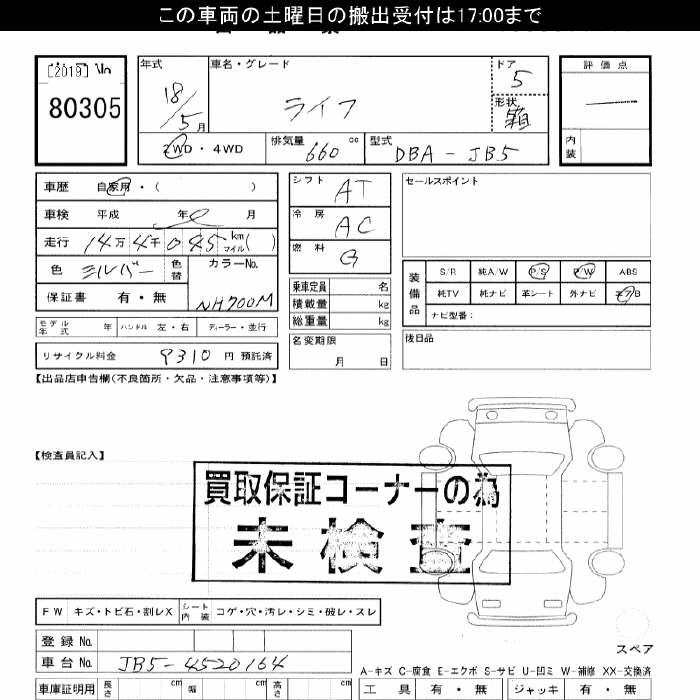 この車両の土曜日の搬出受付は17:00まで
[2019]
80305
年式
18/5月
車名・グレード
ライフ
ドア
5
形状
箱
評価点
内装
2WD・4WD
排気量 660 cc
型式 DBA-JB5
車歴 自家用・( )
車検 平成 年 月
走行 14万4千045 km マイル( )
色 シルバー
色替
カラーNo.
NH700M
保証書 有・無
シフト AT
冷房 AC
燃料 G
乗車定員 名
積載量 kg
総重量 kg
名変期限
月 日
セールスポイント
装備品
S/R 純A/W P/S P/W ABS
純TV 純ナビ 革シート 外ナビ エアB
ナビ型番:
後日品
モデル年式 年 ハンドル 左・右 ディーラー・並行
リサイクル料金 9310 円 預託済
【出品店申告欄(不良箇所・欠品・注意事項等)】
【検査員記入】
買取保証コーナーの為
未検査
FW キズ・トビ石・割レX シート内装 コゲ・穴・汚レ・シミ・破レ・スレ
登録No.
車台No. JB5-4520164
車庫証明用 長さ cm 幅 cm 高さ cm
スペア
A-キズ C-腐食 E-エクボ S-サビ U-凹ミ W-補修 XX-交換済
工具 有・無 ジャッキ 有・無